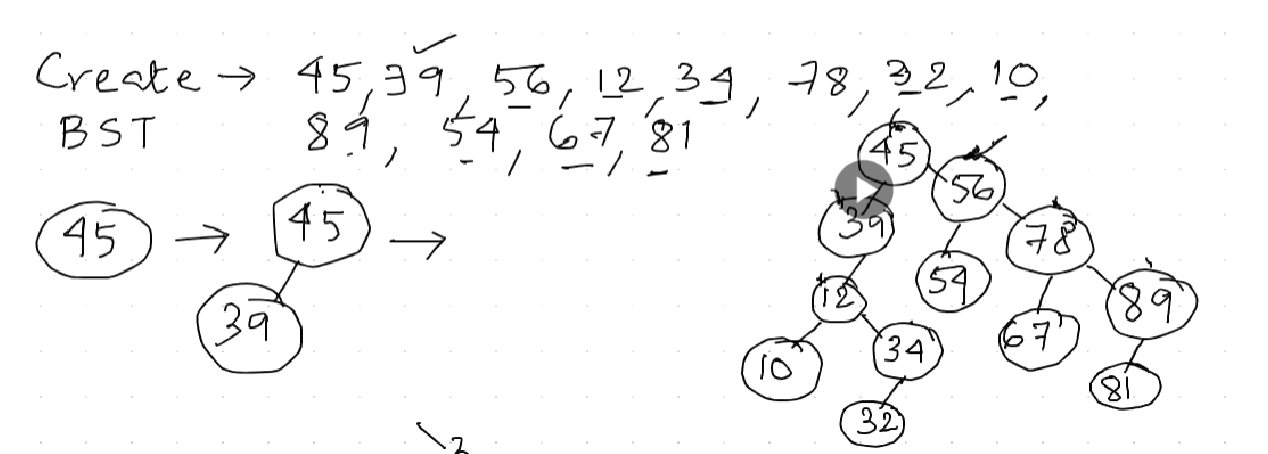 Create → 45, 39, 56, 12, 34, 78, 32, 10,
BST 89, 54, 67, 81
45 → 45 →
39
45
56
39
78
12
54
89
10
34
67
81
32